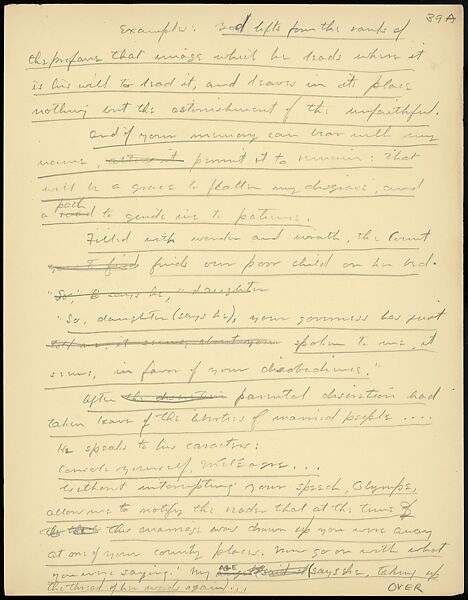 39A
Examples: God lifts from the ranks of
the profane that image which he leads where it
is his will to lead it, and leaves in its place
nothing but the astonishment of the unfaithful.
And if your memory can bear with my
name, permit it to remain: that
will be a grace to flatter my disgrace, and
a path to guide me to patience.
Filled with wonder and wrath, the Count
finds our poor child on her bed.
"So," says he, "daughter
"So, daughter (says he), your governess has just
spoken to me, it
seems, in favor of your disobedience."
After the discretion parental discretion had
taken leave of the liberties of married people ....
He speaks to his cassettes:
Console yourself, ...
Without interrupting your speech, Olympe,
allow me to notify the reader that at the time of
this marriage was drawn up you were away
at one of your country places. Now go on with what
you were saying. My (says she, taking up
the thread of her words again...
OVER